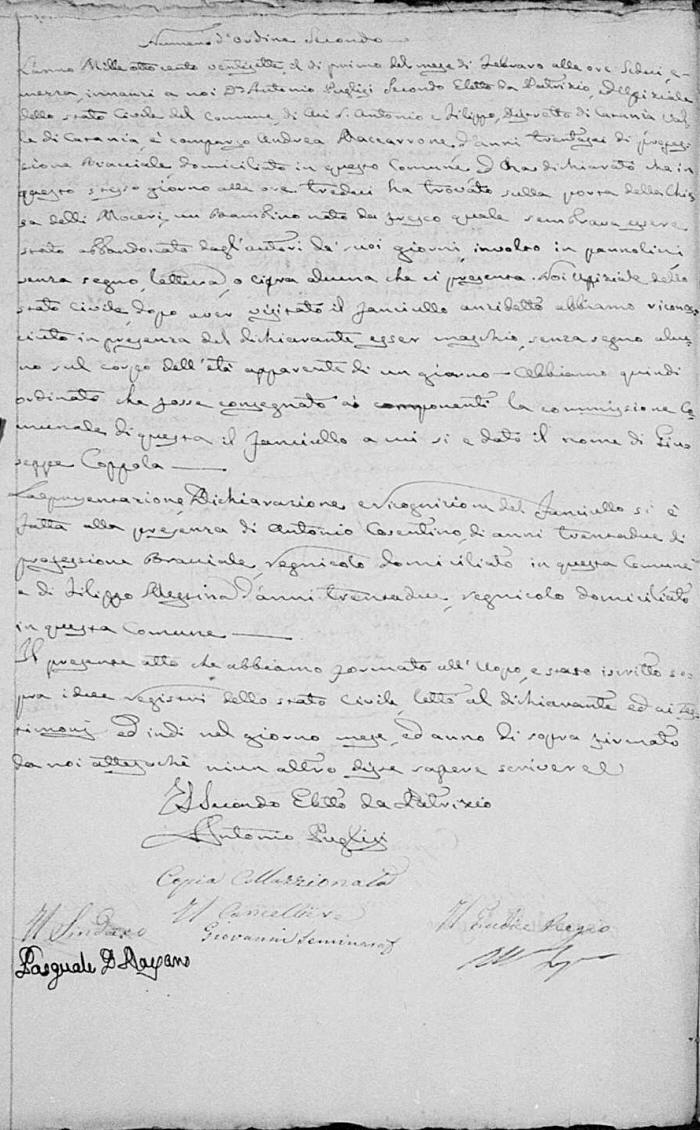 Numero d'ordine Secondo
L'anno Mille otto cento ventisette, il dì primo del mese di Febraro alle ore Sedeci, e
mezza, innanzi a noi Dn Antonio Puglisi Secondo Eletto da Patrizio, ed Uffiziale
dello stato Civile del Comune di Aci S. Antonio e Filippo, distretto di Catania Val
le di Catania, è comparso Andrea Zaccarrone, d'anni trentasei di profes
sione Bracciale domiciliato in questo Comune, ed ha dichiarato che in
questo stesso giorno alle ore tredici ha trovato sulla porta della Chie
sa delli un Bambino nato da fresco quale sembrava essere
stato abbandonato dagl'autori de' suoi giorni, involto in pannolini
senza segno, lettera, o cifra alcuna che ci presenta. Noi Ufiziale dello
stato Civile, dopo aver visitato il fanciullo anzidetto abbiamo ricono
sciuto in presenza del dichiarante esser maschio, senza segno alcu
no sul corpo dell'età apparente di un giorno - Abbiamo quindi
ordinato che fosse consegnato ai componenti la commissione Co
munale di questa il fanciullo a cui si è dato il nome di Giu
seppe Coppola
La presentazione, Dichiarazione, e ricognizione del fanciullo si è
fatta alla presenza di Antonio Cosentino di anni trentadue di
professione Bracciale, regnicolo domiciliato in questa Comune
e di Filippo Messina d'anni trentadue, regnicolo domiciliato
in questa Comune
Il presente atto che abbiamo formato all'Uopo, è stato iscritto so
pra i due registri dello stato Civile, letto al dichiarante ed ai tes
timonj ed indi nel giorno mese, ed anno di sopra firmato
da noi attesochè niun altro disse sapere scrivere
Il Secondo Eletto da Patrizio
Antonio Puglisi
Copia Collazzionata
Il Sindaco Il Cancelliere Il Giudice Regio
Giovanni Seminara
Pasquale D